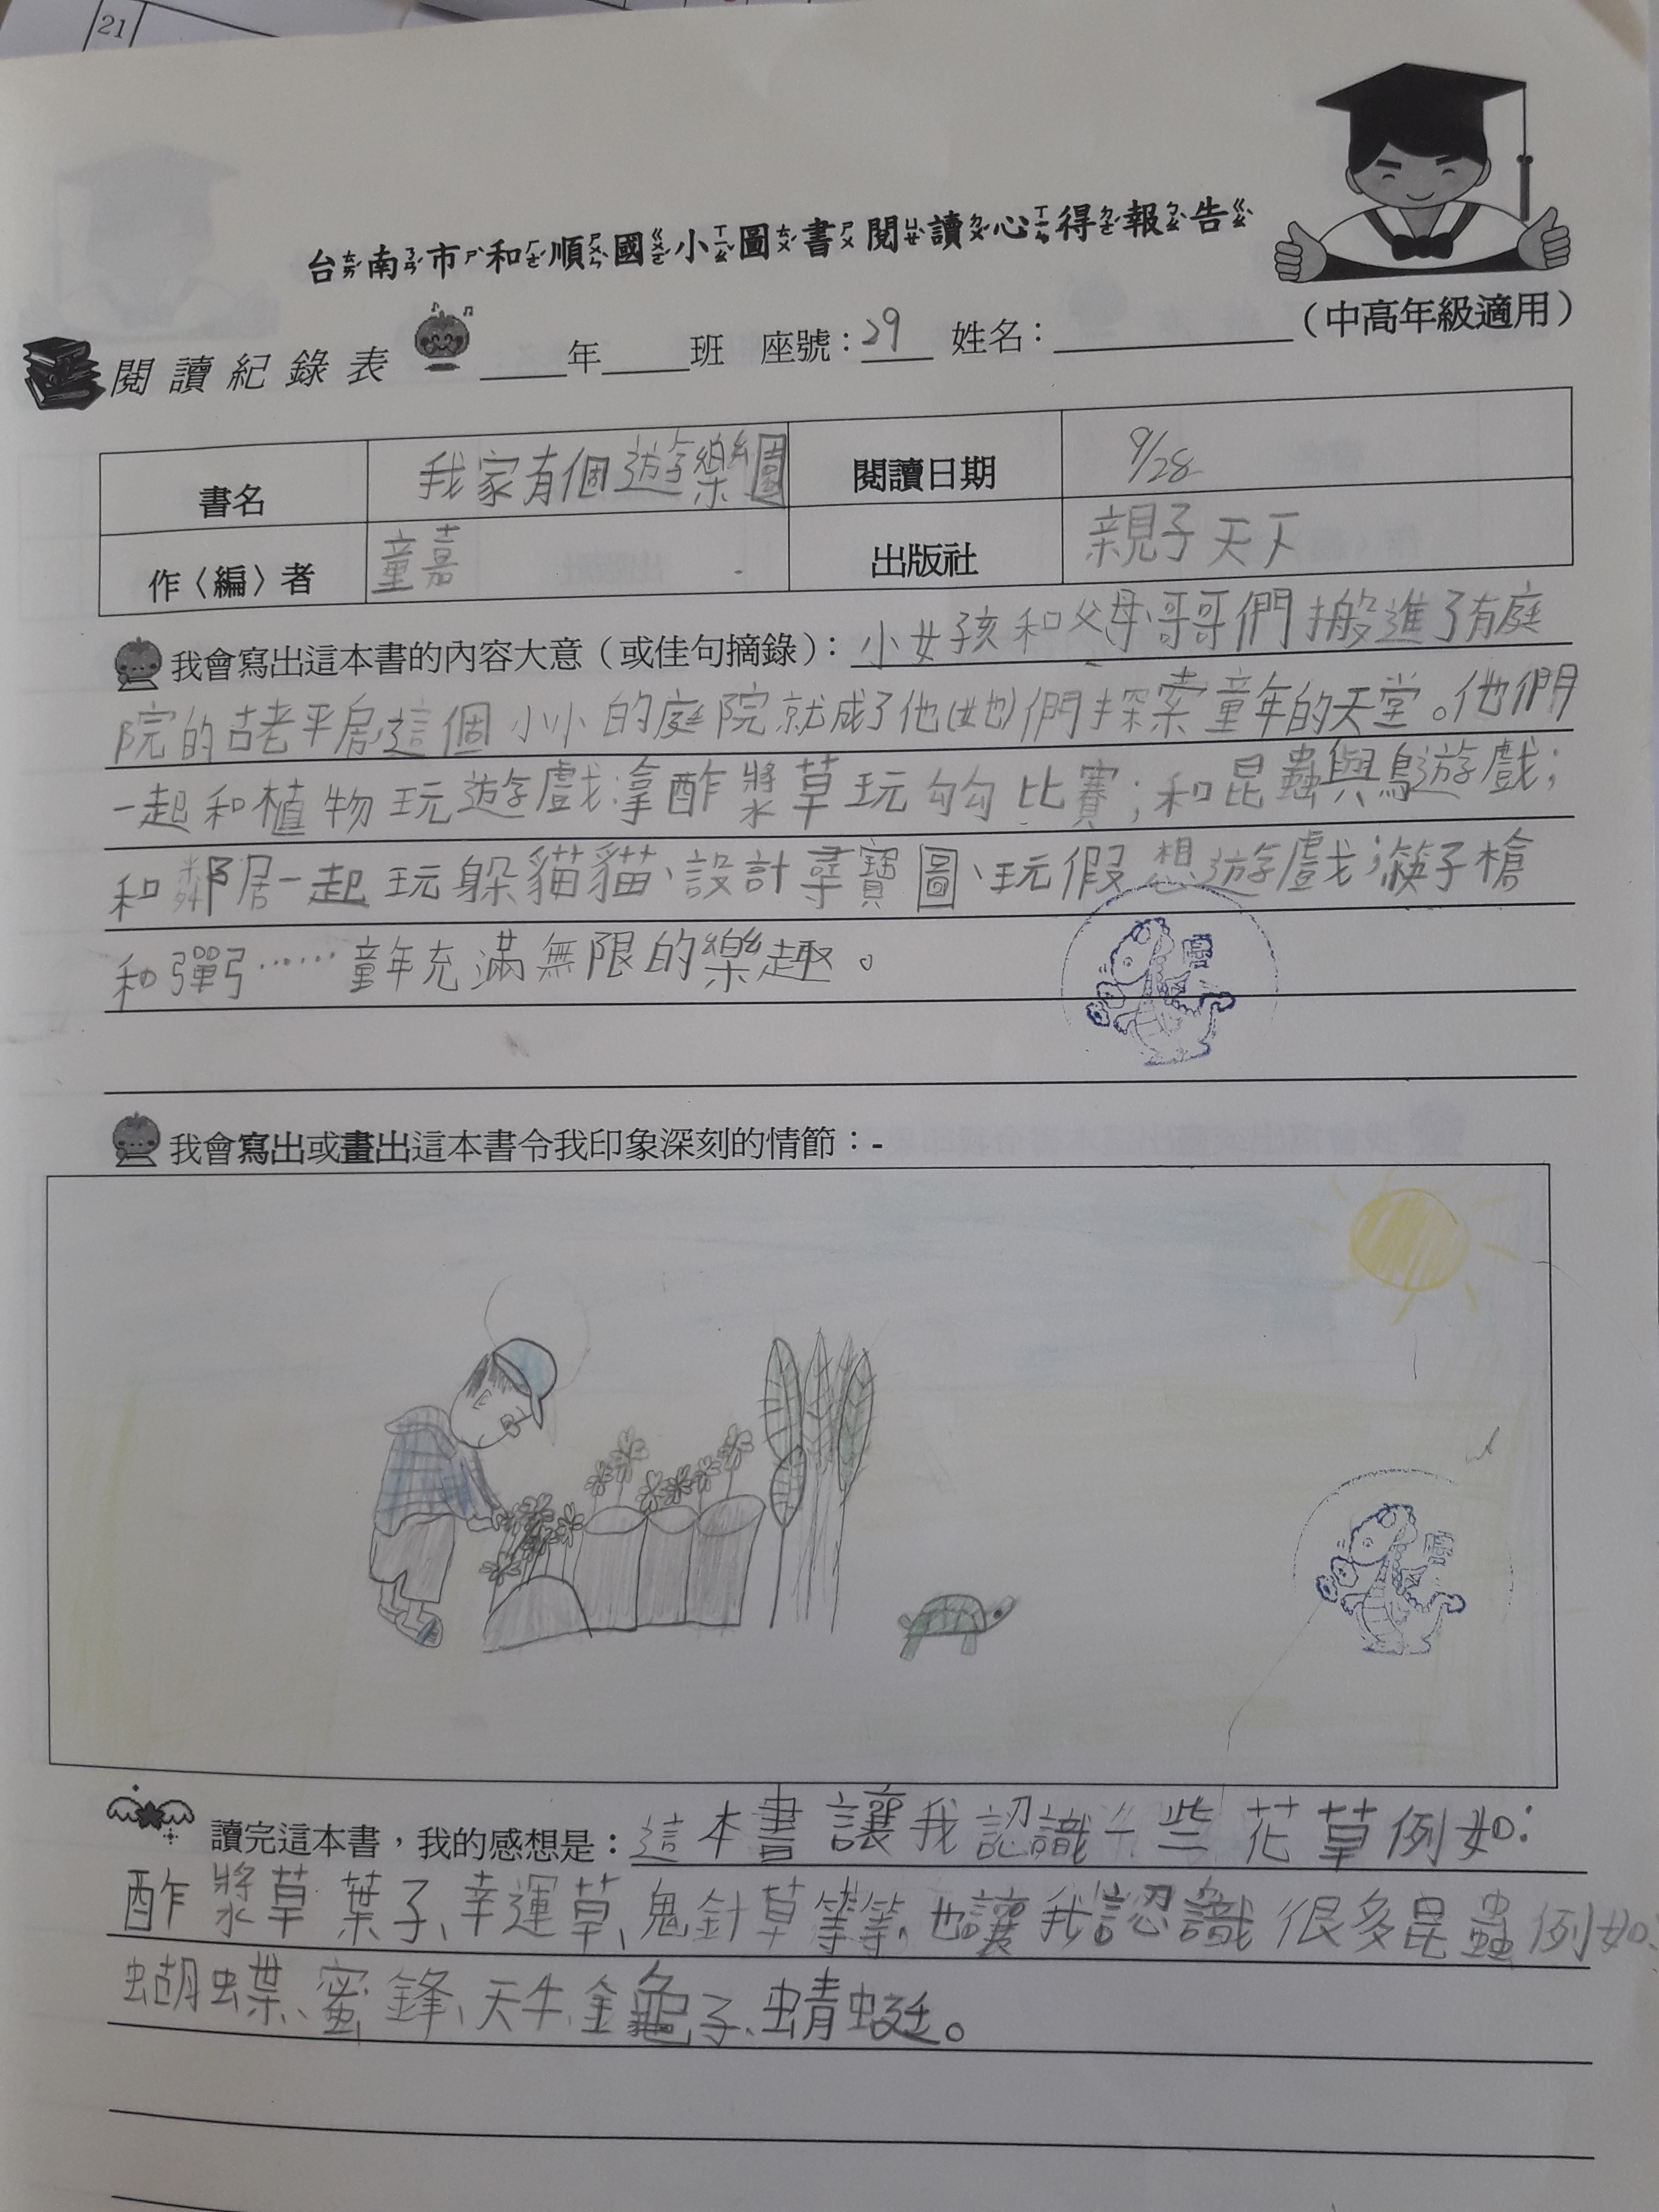 21
台南市和順國小圖書閱讀心得報告
(中高年級適用)
閱讀紀錄表 ____年____班 座號：29 姓名：
書名 我家有個遊樂園 閱讀日期 9/28
作〈編〉者 童嘉 出版社 親子天下
我會寫出這本書的內容大意（或佳句摘錄）：小女孩和父母、哥哥們搬進了有庭
院的古老平房這個小小的庭院就成了他(她)們探索童年的天堂。他們
一起和植物玩遊戲:拿酢漿草玩勾勾比賽;和昆蟲與鳥遊戲;
和鄰居一起玩躲貓貓、設計尋寶圖、玩假想遊戲;筷子槍
和彈弓……童年充滿無限的樂趣。
我會寫出或畫出這本書令我印象深刻的情節：-
讀完這本書，我的感想是：這本書讓我認識一些花草例如:
酢漿草葉子、幸運草、鬼針草等等,也讓我認識很多昆蟲例如:
蝴蝶、蜜鋒、天牛、金龜子、蜻蜓。